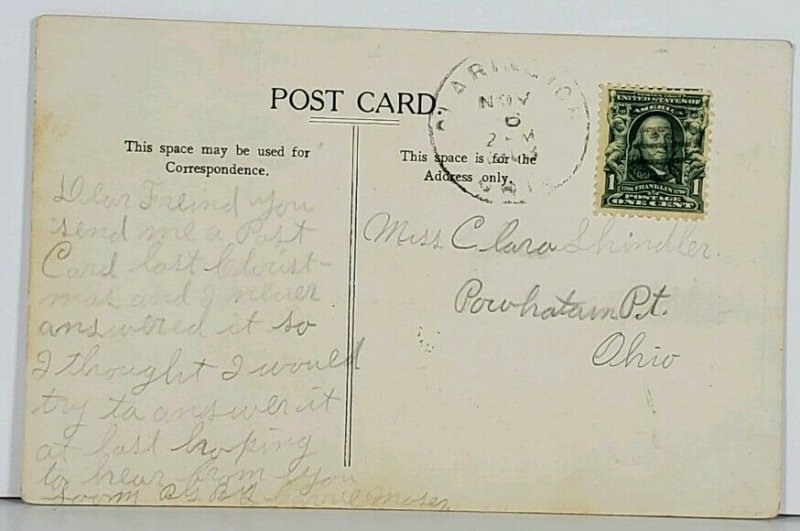 POST CARD.
This space may be used for
Correspondence.
This space is for the
Address only.
NOV
6
OHIO
UNITED STATES OF
AMERICA
FRANKLIN
1 1
POSTAGE
ONE CENT
Dear Freind you
send me a Post
Card last Christ-
mas and I never
answered it so
I thought I would
try to answer it
at last hoping
to hear from you
soon
Miss Clara Shindler
Powhatan Pt.
Ohio